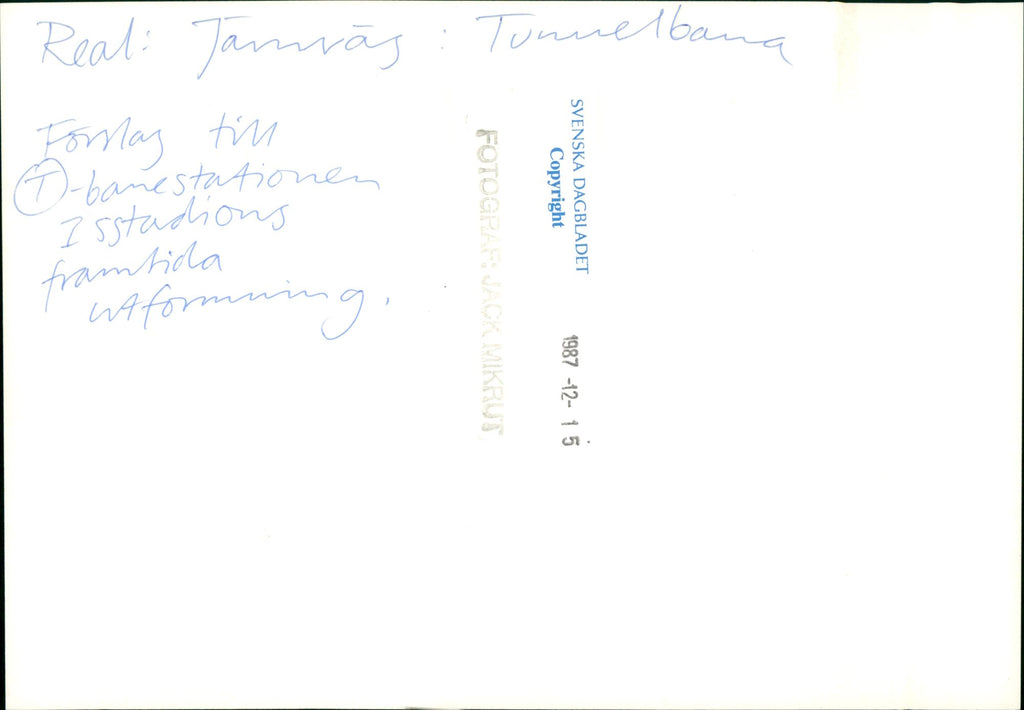 Real: Järnväg : Tunnelbana
Förslag till
T-banestationen
Isstadions
framtida
utformning.
FOTOGRAF: JACK MIKRUT
SVENSKA DAGBLADET
Copyright
1987 -12- 15